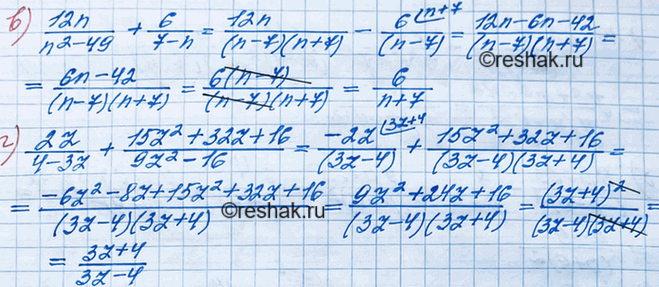 в) 12n/(n²-49) + 6/(7-n) = 12n/((n-7)(n+7)) - 6^(n+7)/(n-7) = (12n-6n-42)/((n-7)(n+7)) =
= (6n-42)/((n-7)(n+7)) = 6(n-7)/((n-7)(n+7)) = 6/(n+7)
©reshak.ru
г) 2z/(4-3z) + (15z²+32z+16)/(9z²-16) = -2z^(3z+4)/(3z-4) + (15z²+32z+16)/((3z-4)(3z+4)) =
= (-6z²-8z+15z²+32z+16)/((3z-4)(3z+4)) = (9z²+24z+16)/((3z-4)(3z+4)) = (3z+4)²/((3z-4)(3z+4)) =
©reshak.ru
= (3z+4)/(3z-4)